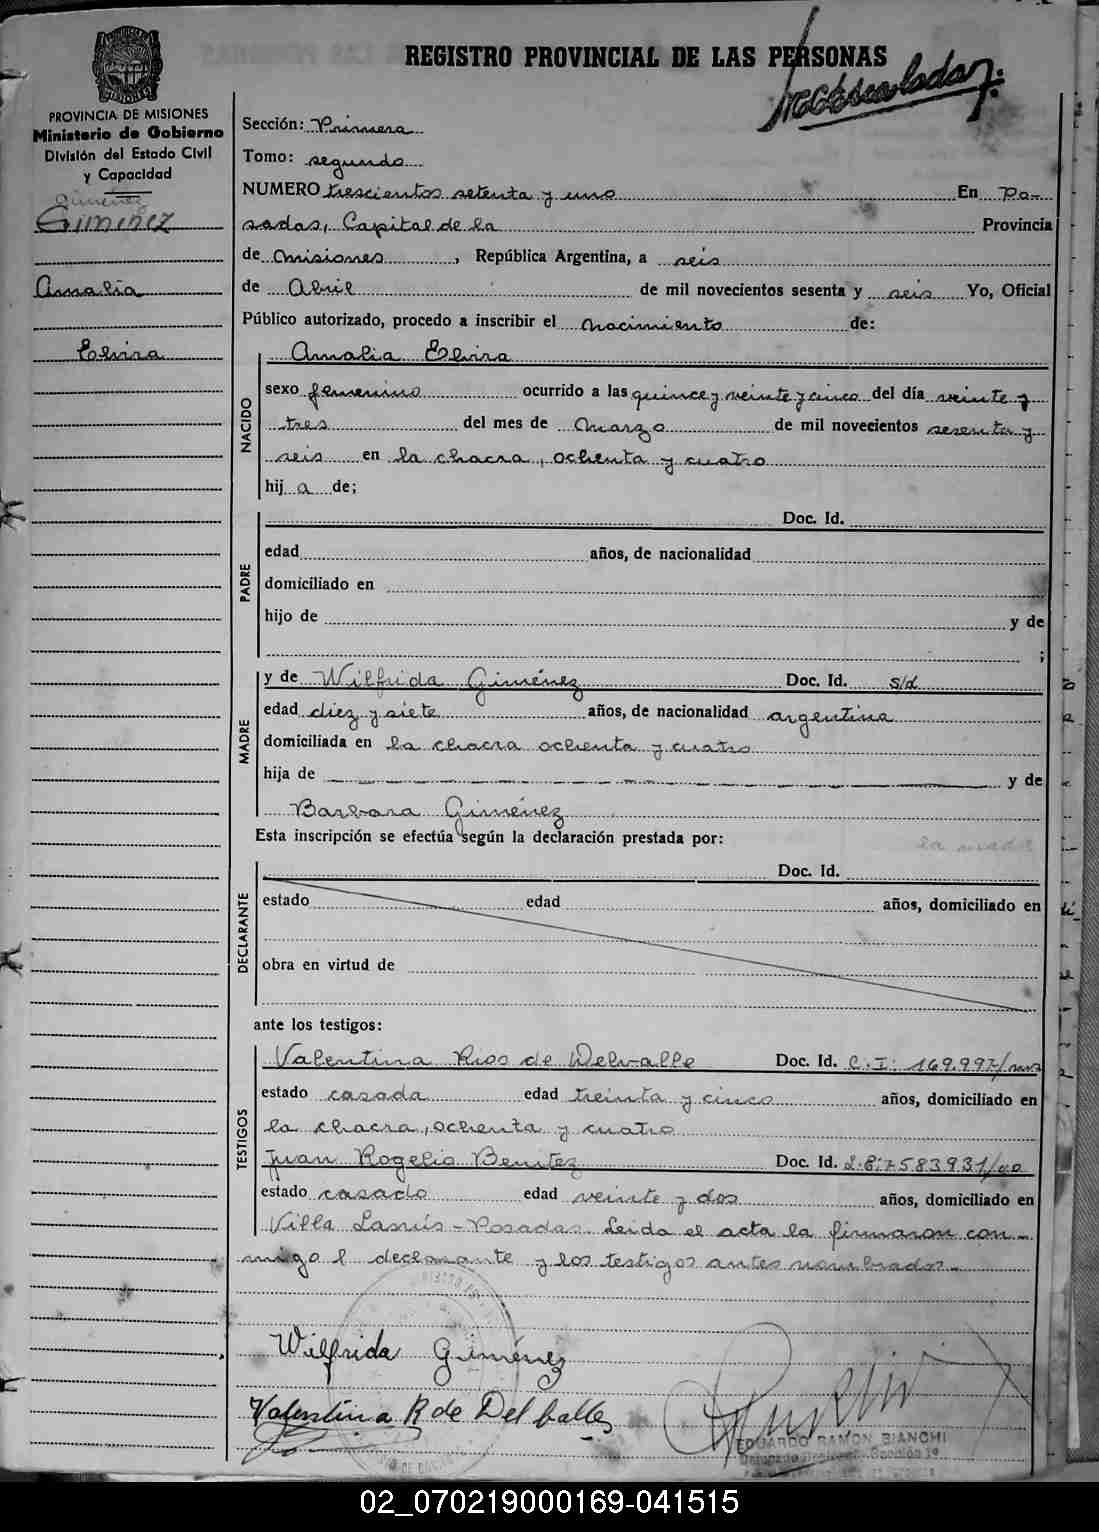 REGISTRO PROVINCIAL DE LAS PERSONAS
PROVINCIA DE MISIONES
Ministerio de Gobierno
División del Estado Civil
y Capacidad
Giménez
GIMENEZ
Amalia
Elvira
Sección: Primera
Tomo: segundo
NUMERO trescientos setenta y uno En Po-
sadas, Capital de la Provincia
de Misiones, República Argentina, a seis
de Abril de mil novecientos sesenta y seis Yo, Oficial
Público autorizado, procedo a inscribir el nacimiento de:
NACIDO
Amalia Elvira
sexo femenino ocurrido a las quince y veinte y cinco del día veinte y
tres del mes de Marzo de mil novecientos sesenta y
seis en la chacra, ochenta y cuatro
hij a de;
PADRE
Doc. Id.
edad años, de nacionalidad
domiciliado en
hijo de y de
;
MADRE
y de Wilfrida Giménez Doc. Id. s/d
edad diez y siete años, de nacionalidad argentina
domiciliada en la chacra ochenta y cuatro
hija de y de
Barbara Giménez
Esta inscripción se efectúa según la declaración prestada por:
la madre
DECLARANTE
Doc. Id.
estado edad años, domiciliado en
obra en virtud de
ante los testigos:
TESTIGOS
Valentina Rios de Delvalle Doc. Id. C.I: 169.997/mns
estado casada edad treinta y cinco años, domiciliado en
la chacra, ochenta y cuatro
Juan Rogelio Benitez Doc. Id. L.E: 7583931/
estado casado edad veinte y dos años, domiciliado en
Villa Lanús - Posadas. Leida el acta la firmaron con-
migo l declarante y los testigos antes nombrados.-
Wilfrida Giménez
Valentina R de Del balle
EDUARDO RAMON BIANCHI
Sección 1ª
02_070219000169-041515